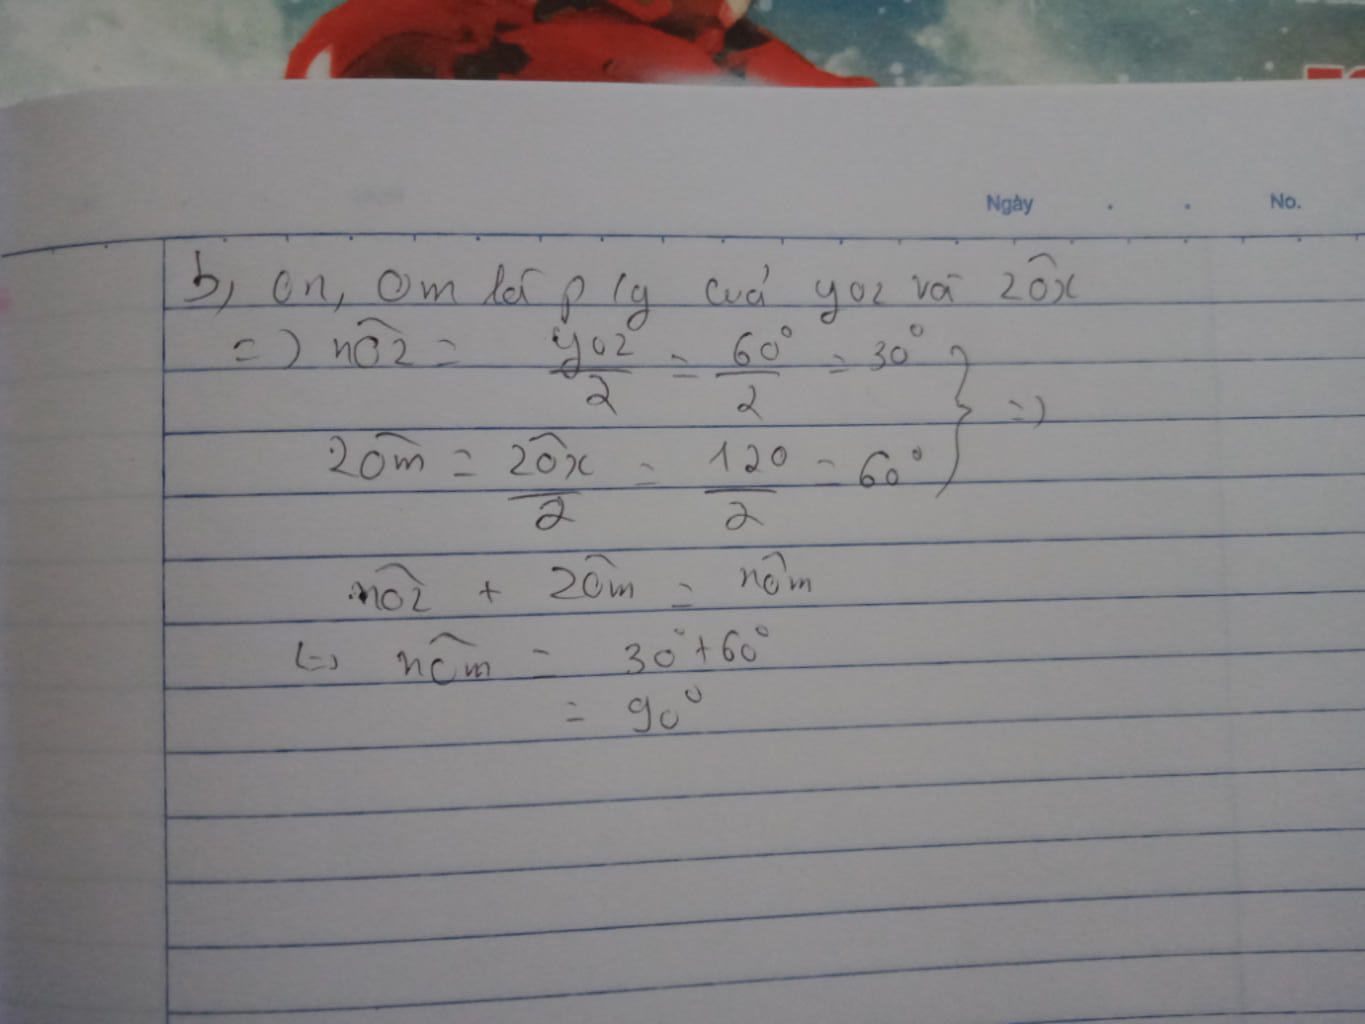 Ngày . . No.
b, On, Om là p/g của yoz và zôx
=) nôz = yoz/2 = 60°/2 = 30°
} =)
zôm = zôx/2 = 120/2 = 60°
nôz + zôm = nôm
(=) nôm = 30° + 60°
= 90°